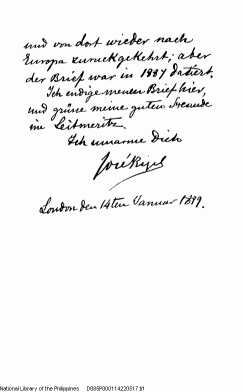 und von dort wieder nach
Europa zurückgekehrt; aber
der Brief war in 1887 datiert.
Ich endige meinen Brief hier,
und grüße meine guten Freunde
in Leitmeritz.
Ich umarme Dich
José Rizal
London den 14ten Januar 1889.
National Library of the Philippines